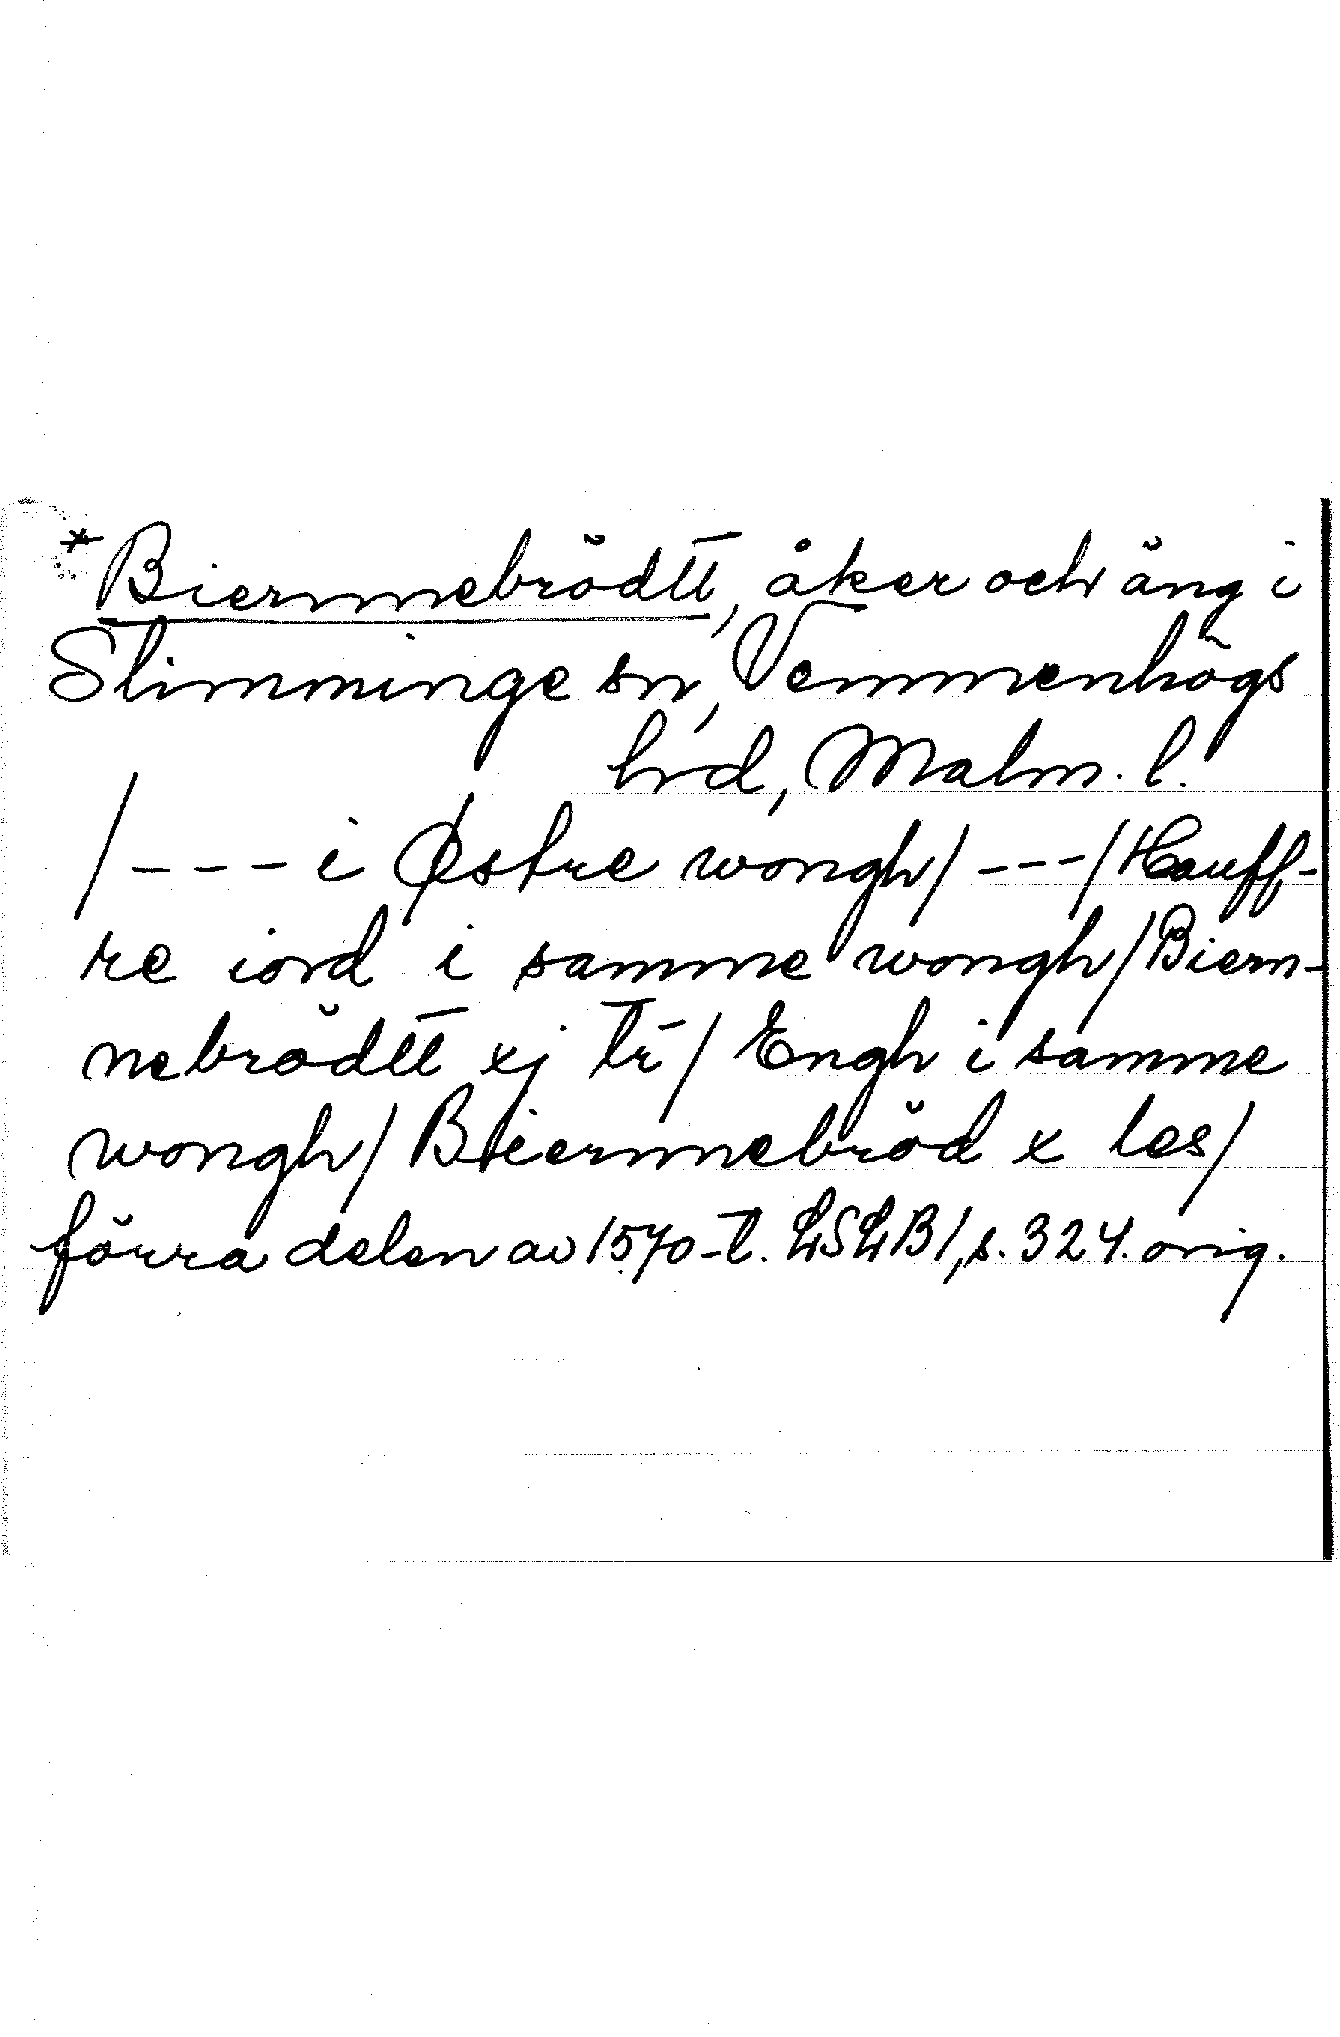 *Biernnebrödtt, åker och äng i
Slimminge sn, Vemmenhögs
hrd, Malm. l.
/--- i Østre wongh/ ---/Hauff-
re iord i samme wongh/Biern-
nebrödtt xj tr/ Engh i samme
wongh/ Biernnebröd x les/
förra delen av 1570-t. LSLB1, s. 324. orig.